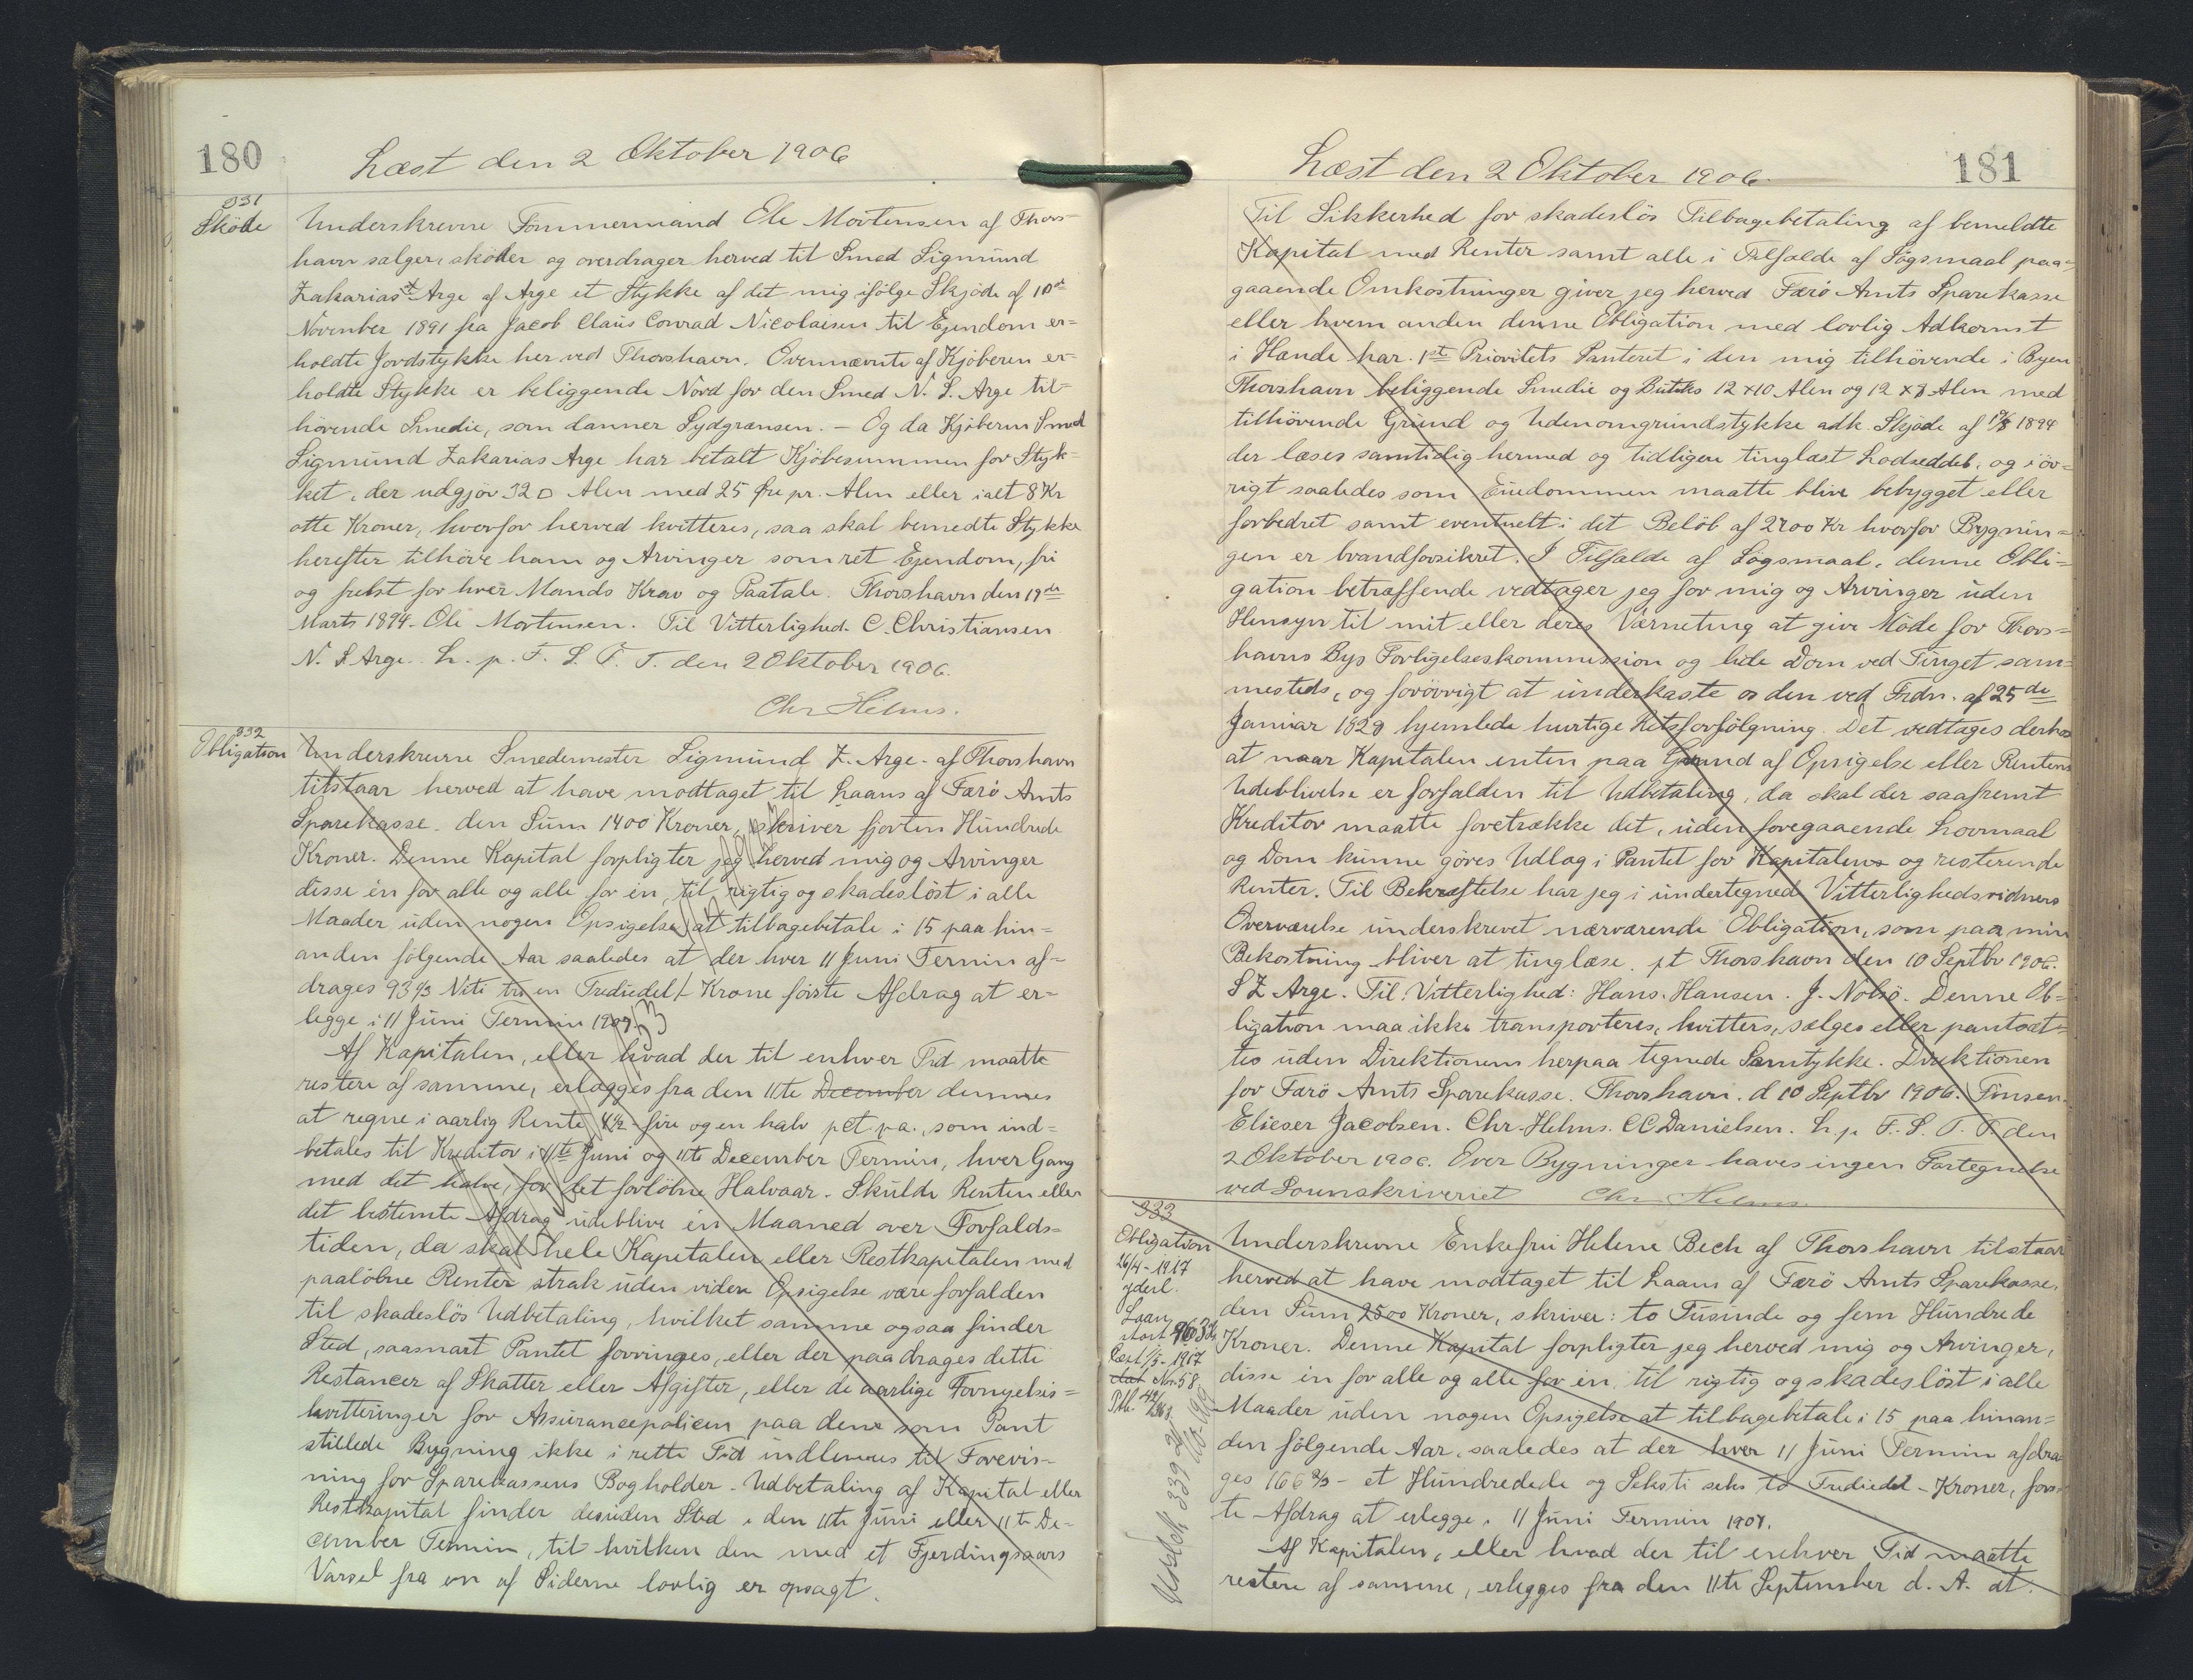 180
Læst den 2 Oktober 1906
931
Sköde
Underskrevne Tömmermand Ole Mortensen af Thors-
havn sælger, sköder og overdrager herved til Smed Sigmund
Zakarias Arge af Arge et Stykke af det mig ifölge Skjöde af 10de
November 1891 fra Jacob Claus Conrad Nicolaisen til Ejendom er-
holdte Jordstykke her ved Thorshavn. Ovennævnte af Kjöberen er-
holdte Stykke er beliggende Nord for den Smed N. S. Arge til-
hörende Smedie, som danner Sydgrænsen. – Og da Kjöberen Smed
Sigmund Zakarias Arge har betalt Kjöbesummen for Styk-
ket, der udgjör 32 □ Alen med 25 Öre pr. Alen eller ialt 8 Kr
otte Kroner, hvorfor herved kvitteres, saa skal bemedte Stykke
herefter tilhöre ham og Arvinger som ret Ejendom, fri
og frelst for hver Mands Krav og Paatale. Thorshavn den 19de
Marts 1894. Ole Mortensen. Til Vitterlighed. C. Christiansen
N. S Arge. L. p. F. S. T. T. den 2 Oktober 1906.
Chr Helms.
932
Obligation
Underskrevne Smedemester Sigmund Z. Arge. af Thorshavn
tilstaar herved at have modtaget til Laans af Færö Amts
Sparekasse. den Sum 1400 Kroner, skriver fjorten Hundrede
Kroner. Denne Kapital forpligter jeg herved mig og Arvinger
disse én for alle og alle for én, til rigtig og skadeslöst i alle
Maader uden nogen Opsigelse at tilbagebetale i 15 paa hin-
anden fölgende Aar saaledes at der hver 11 Juni Termin af-
drages 93⅓ Niti tre en Trediedel Krone förste Afdrag at er-
legge i 11 Juni Termin 1907.
Af Kapitalen, eller hvad der til enhver Tid maatte
restere af samme, erlægges fra den 11te December dennes
at regne i aarlig Rente 4½ fire og en halv pCt. p.a., som ind-
betales til Kreditor i 11te Juni og 11te December Termin, hver Gang
med det halve, for det forlöbne Halvaar. Skulde Renten eller
det bestemte Afdrag udeblive én Maaned over Forfalds-
tiden, da skal hele Kapitalen eller Restkapitalen med
paalöbne Renter strak uden videre Opsigelse være forfalden
til skadeslös Udbetaling, hvilket samme ogsaa finder
Sted, saasnart Pantet forringes, eller der paadrages dette
Restancer af Skatter eller Afgifter, eller de aarlige Fornyelses-
kvitteringer for Assurancepolicen paa dene som Pant
stillede Bygning ikke i rette Tid indleveres til Forevis-
ning for Sparekassens Bogholder. Udbetaling af Kapital eller
Restkapital finder desuden Sted i den 11te Juni eller 11te De-
cember Termin, til hvilken den med et Fjerdingsaars
Varsel fra en af Siderne lovlig er opsagt.
181
Læst den 2 Oktober 1906.
Til Sikkerhed for skadeslös Tilbagebetaling af bemeldte
Kapital med Renter samt alle i Tilfælde af Sögsmaal paa-
gaaende Omkostninger giver jeg herved Færö Amts Sparekasse
eller hvem anden denne Obligation med lovlig Adkomst
i Hænde har. 1ste Prioritets Panteret i den mig tilhörende i Byen
Thorshavn beliggende Smedie og Butiks 12 x 10 Alen og 12 x 8 Alen med
tilhörende Grund og Udenomgrundstykke adk. Skjöde af 19/3 1894
der læses samtidig hermed og tidligere tinglæst Lodseddel, og iöv-
rigt saaledes som Eiedommen maatte blive bebygget eller
forbedret samt eventuelt i det Belöb af 2700 Kr hvorfor Bygnin-
gen er brandforsikret. I Tilfælde af Sögsmaal, denne Obli-
gation betræffende vedtager jeg for mig og Arvinger uden
Hensyn til mit eller deres Værneting at give Möde for Thors-
havns Bys Forligelseskommission og lide Dom ved Tinget sam-
mesteds, og forövrigt at underkaste os den ved Frdn. af 25de
Januar 1828 hjemlede hurtige Retsforfölgning. Det vedtages derhos
at naar Kapitalen enten paa Grund af Opsigelse eller Rentens
Udeblivelse er forfalden til Udbetaling, da skal der saafremt
Kreditor maatte foretrække det, uden foregaaende Lovmaal
og Dom kunne göres Udlag i Pantet for Kapitalens og resterende
Renter. Til Bekræftelse har jeg i undertegned Vitterlighedsvidners
Overværelse underskrevet nærværende Obligation, som paa min
Bekostning bliver at tinglæse. pt Thorshavn den 10 Septbr 1906.
S Z Arge. Til Vitterlighed: Hans Hansen. J. Nolsö. Denne Ob-
ligation maa ikke transporteres, kvitters, sælges eller pantsæt-
tes uden Direktionens herpaa tegnede Samtykke. Direktionen
for Færö Amts Sparekasse. Thorshavn. d 10 Septbr 1906. Finsen.
Elieser Jacobsen. Chr. Helms. CC Danielsen. L. p. F. S. T. T. den
2 Oktober 1906. Over Bygninger haves ingen Fortegnelse
ved Sorenskriveriet Chr Helms.
933
Obligation
26/4-1917
yderl.
Laan
stort 963
Læst 1/5-1917
Nr. 58.
Underskrevne Enkefru Helene Bech af Thorshavn tilstaar
herved at have modtaget til Laans af Færö Amts Sparekasse,
den Sum 2500 Kroner, skriver: to Tusinde og fem Hundrede
Kroner. Denne Kapital forpligter jeg herved mig og Arvinger,
disse én for alle og alle for én, til rigtig og skadeslöst i alle
Maader uden nogen Opsigelse at tilbagebetale i 15 paa hinan-
den fölgende Aar, saaledes at der hver 11 Juni Termin afdra-
ges 166⅔ – et Hundredede og Seksti seks to Trediedel – Kroner, förs-
te Afdrag at erlegge i 11 Juni Termin 1907.
Af Kapitalen, eller hvad der til enhver Tid maatte
restere af samme, erlegges fra den 11te September d. A. at